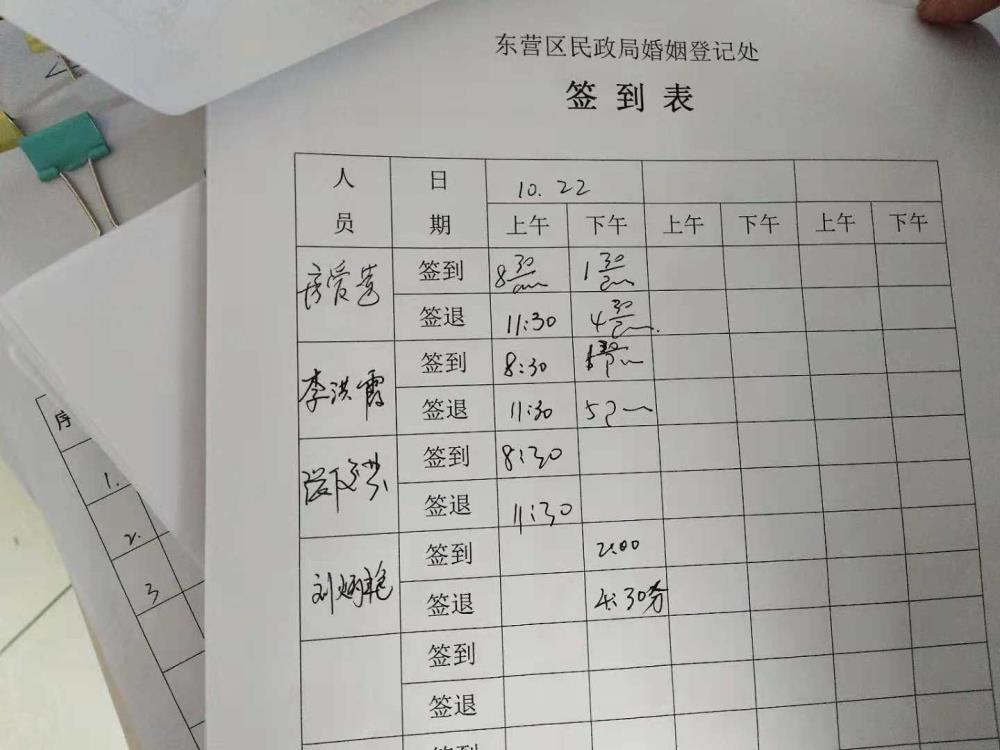 东营区民政局婚姻登记处
签到表
人员 日期 10.22
上午 下午 上午 下午 上午 下午
签到 8 30 1 30
签退 11:30 4 30
李洪霞 签到 8:30
签退 11:30 5
签到 8:30
签退 11:30
刘炳艳 签到 2:00
签退 4:30分
签到
签退
签到
序
1.
2.
3